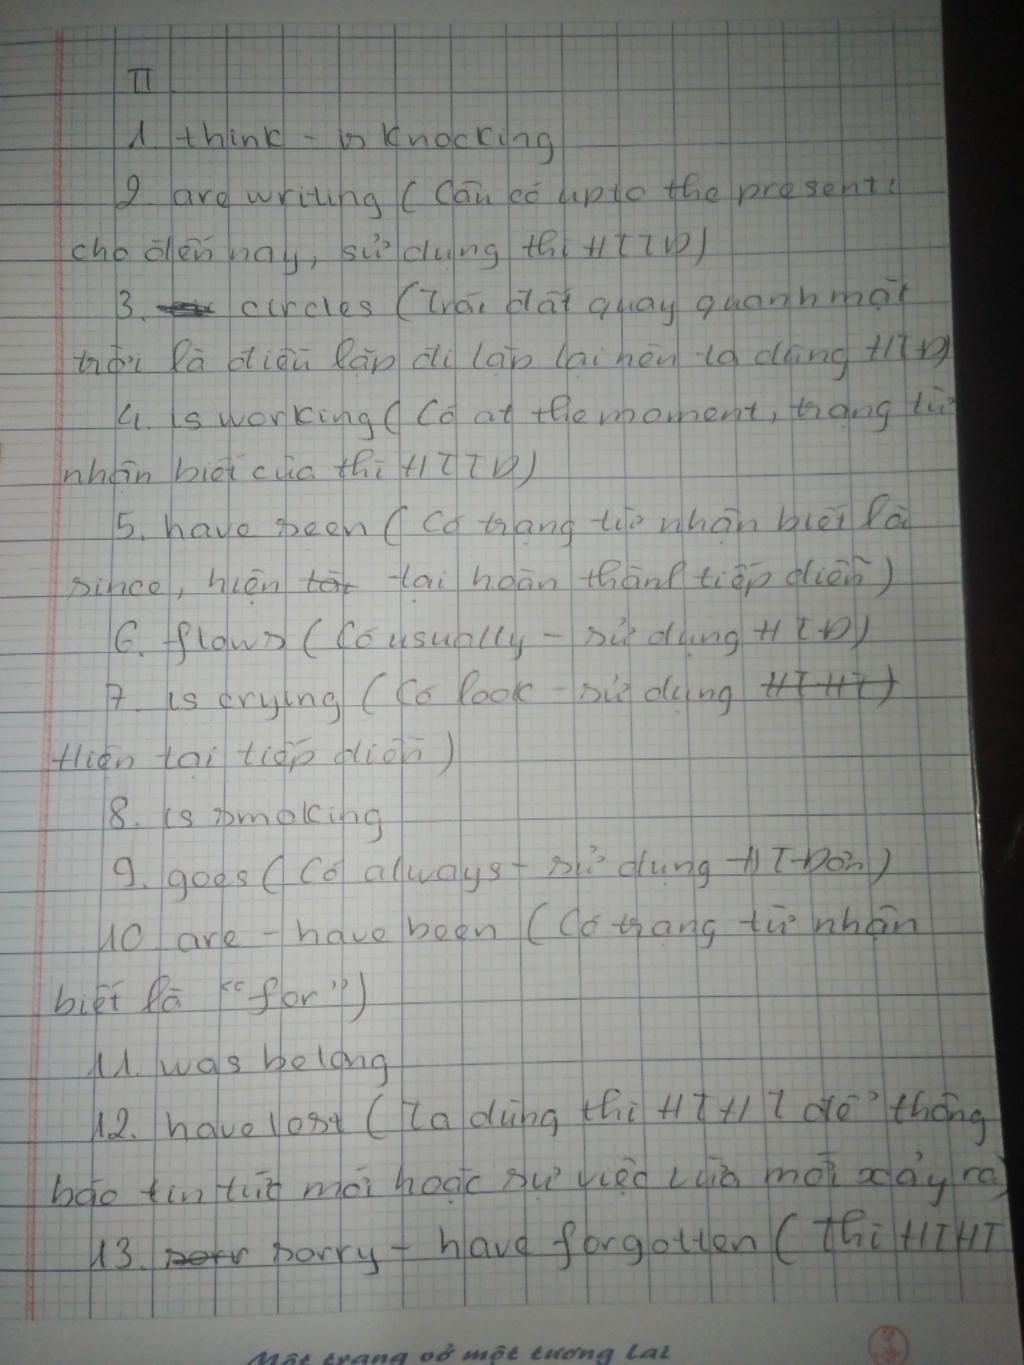 II
1. think - is knocking
2. are writing (Câu có up to the present:
cho đến nay, sử dụng thì HTTD)
3. circles (Trái đất quay quanh mặt
trời là điều lặp đi lặp lại nên ta dùng HTD)
4. is working (Có at the moment, trạng từ
nhận biết của thì HTTD)
5. have seen (Có trạng từ nhận biết là
since, hiện tại hoàn thành tiếp diễn)
6. flows (Có usually - sử dụng HTD)
7. is crying (Có look - sử dụng HTHT)
Hiện tại tiếp diễn)
8. is smoking
9. goes (Có always - sử dụng HT Đơn)
10. are - have been (Có trạng từ nhận
biết là "for")
11. was belong
12. have lost (Ta dùng thì HTHT để thông
báo tin tức mới hoặc sự việc vừa mới xảy ra)
13. sorry - have forgotten (Thì HTHT
Một trang vở một tương lai